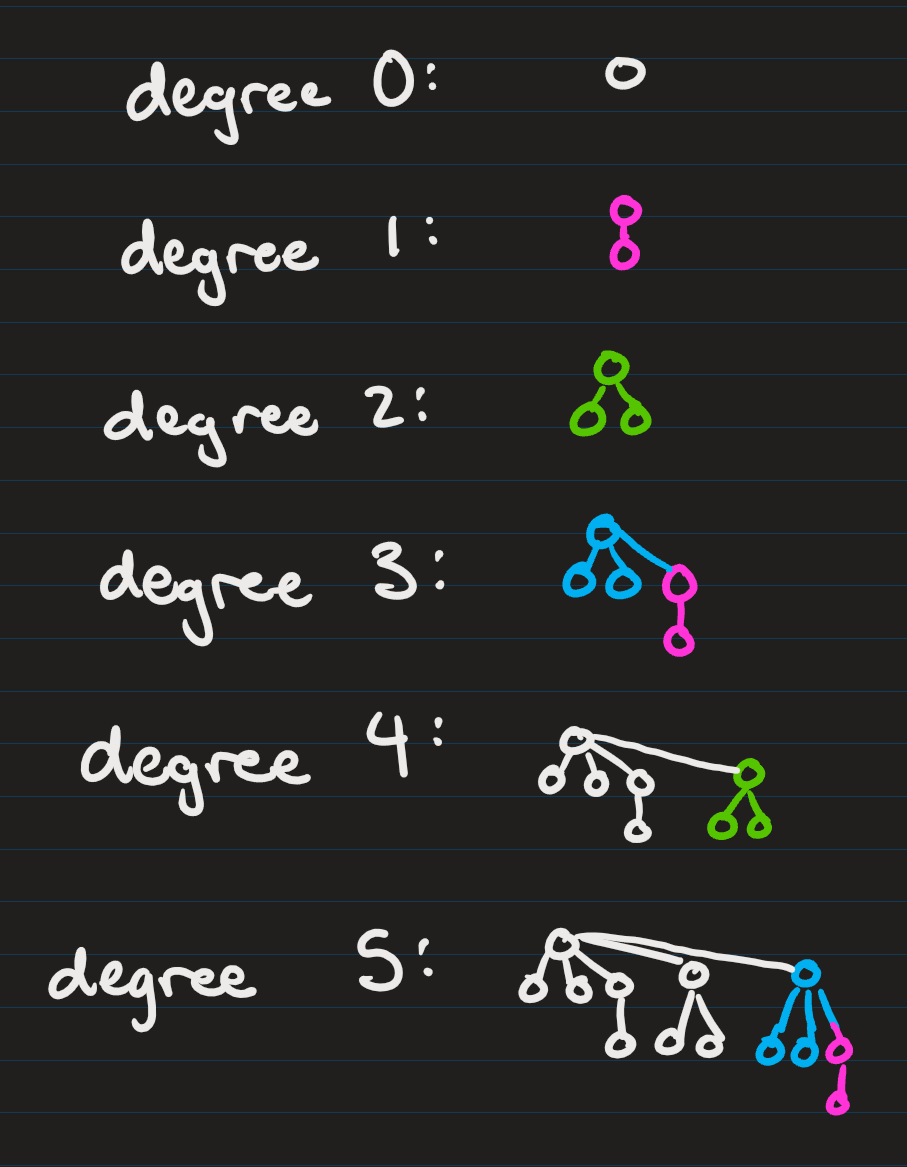 degree 0:
degree 1:
degree 2:
degree 3:
degree 4:
degree 5: